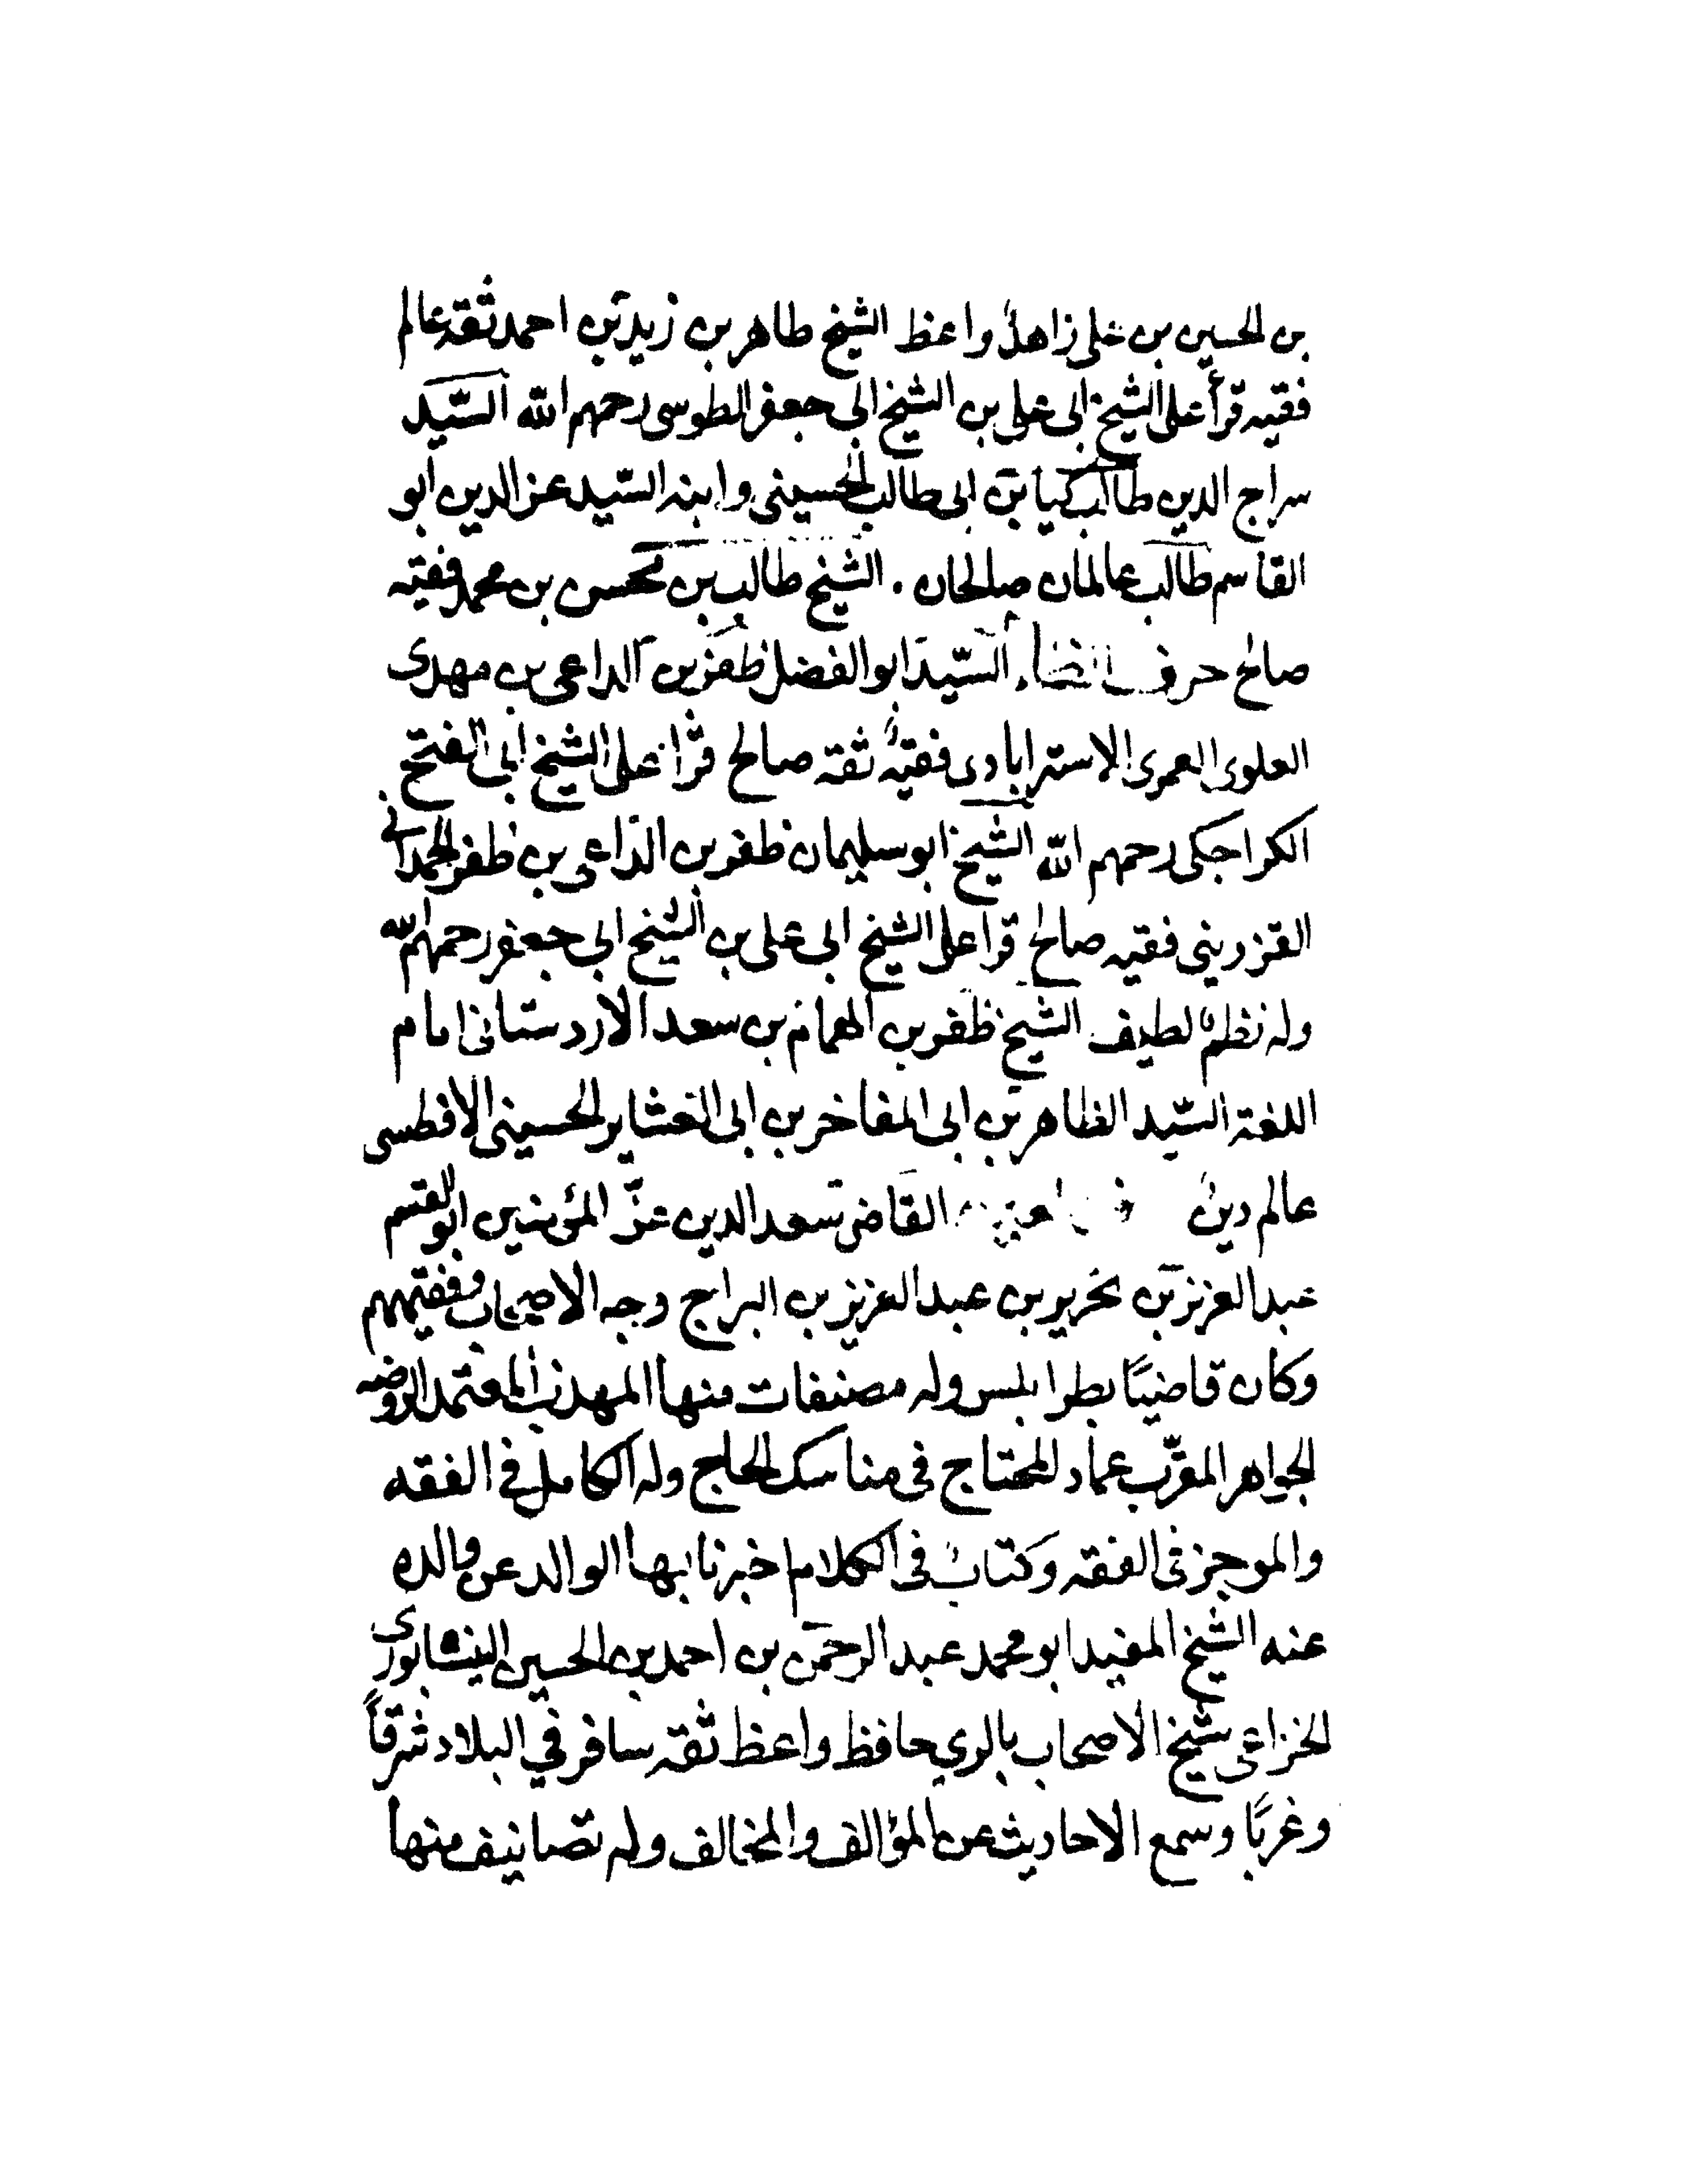 بن الحسين بن على زاهدٌ واعظ الشيخ طاهر بن زيد بن احمد ثقة عالم
فقيه قرأ على الشيخ ابى على بن الشيخ ابى جعفر الطوسى رحمهم الله السّيد
سراج الدين طالب كيا بن ابى طالب الحسينى وابنه السّيد عز الدين ابو
القاسم طالب عالمان صالحان . الشيخ طالب بن محسن بن محمد فقيه
صالح حرف الظاء السّيد ابو الفضل ظفر بن الداعى بن مهدى
العلوى العمرى الاسترابادى فقيهٌ ثقة صالح قرأ على الشيخ ابى الفتح
الكراجكى رحمهم الله الشيخ ابو سليمان ظفر بن الداعى بن ظفر الحمدانى
القزوينى فقيه صالح قرا على الشيخ ابى على بن الشيخ ابى جعفر رحمهم الله
وله نظمٌ لطيف الشيخ ظفر بن الهمام بن سعد الاردستانى امام
اللغة السّيد الظاهر بن ابى المفاخر بن ابى العشاير الحسينى الافطسى
عالم دينٌ القاضى سعد الدين عزّ المؤمنين ابو القسم
عبد العزيز بن نحرير بن عبد العزيز بن البراج وجه الاصحاب وفقيههم
وكان قاضيًا بطرابلس وله مصنفات منها المهذب المعتمد الروضه
الجواهر المقرّب عماد المحتاج فى مناسك الحاج وله الكامل فى الفقه
والموجز فى الفقه وكتابٌ فى الكلام اخبرنا بها الوالد عن والده
عنه الشيخ المفيد ابو محمد عبد الرحمن بن احمد بن الحسين النيشابورى
الخزاعى شيخ الاصحاب بالري حافظ واعظ ثقة سافر في البلاد شرقاً
وغربًا وسمع الاحاديث عن المؤالف والمخالف وله تصانيف منها